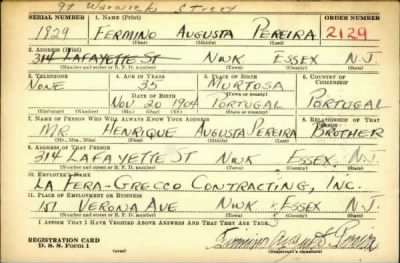 97 Warwick Street
SERIAL NUMBER 1. NAME (Print) ORDER NUMBER
1829 FERMINO AUGUSTA PEREIRA 2129
(First) (Middle) (Last)
2. ADDRESS (Print)
314 LAFAYETTE ST NWK ESSEX N.J.
(Number and street or R. F. D. number) (Town) (County) (State)
3. TELEPHONE 4. AGE IN YEARS 5. PLACE OF BIRTH 6. COUNTRY OF CITIZENSHIP
NONE 35 MURTOSA
DATE OF BIRTH (Town or county)
NOV 20 1904 PORTUGAL PORTUGAL
(Exchange) (Number) (Mo.) (Day) (Yr.) (State or country)
7. NAME OF PERSON WHO WILL ALWAYS KNOW YOUR ADDRESS 8. RELATIONSHIP OF THAT PERSON
MR. HENRIQUE AUGUSTA PEREIRA BROTHER
(Mr., Mrs., Miss) (First) (Middle) (Last)
9. ADDRESS OF THAT PERSON
314 LAFAYETTE ST NWK ESSEX N.J.
(Number and street or R. F. D. number) (Town) (County) (State)
10. EMPLOYER'S NAME
LA FERA-GRECCO CONTRACTING, INC.
11. PLACE OF EMPLOYMENT OR BUSINESS
151 VERONA AVE NWK ESSEX N.J.
(Number and street or R. F. D. number) (Town) (County) (State)
I AFFIRM THAT I HAVE VERIFIED ABOVE ANSWERS AND THAT THEY ARE TRUE.
REGISTRATION CARD
D. S. S. Form 1